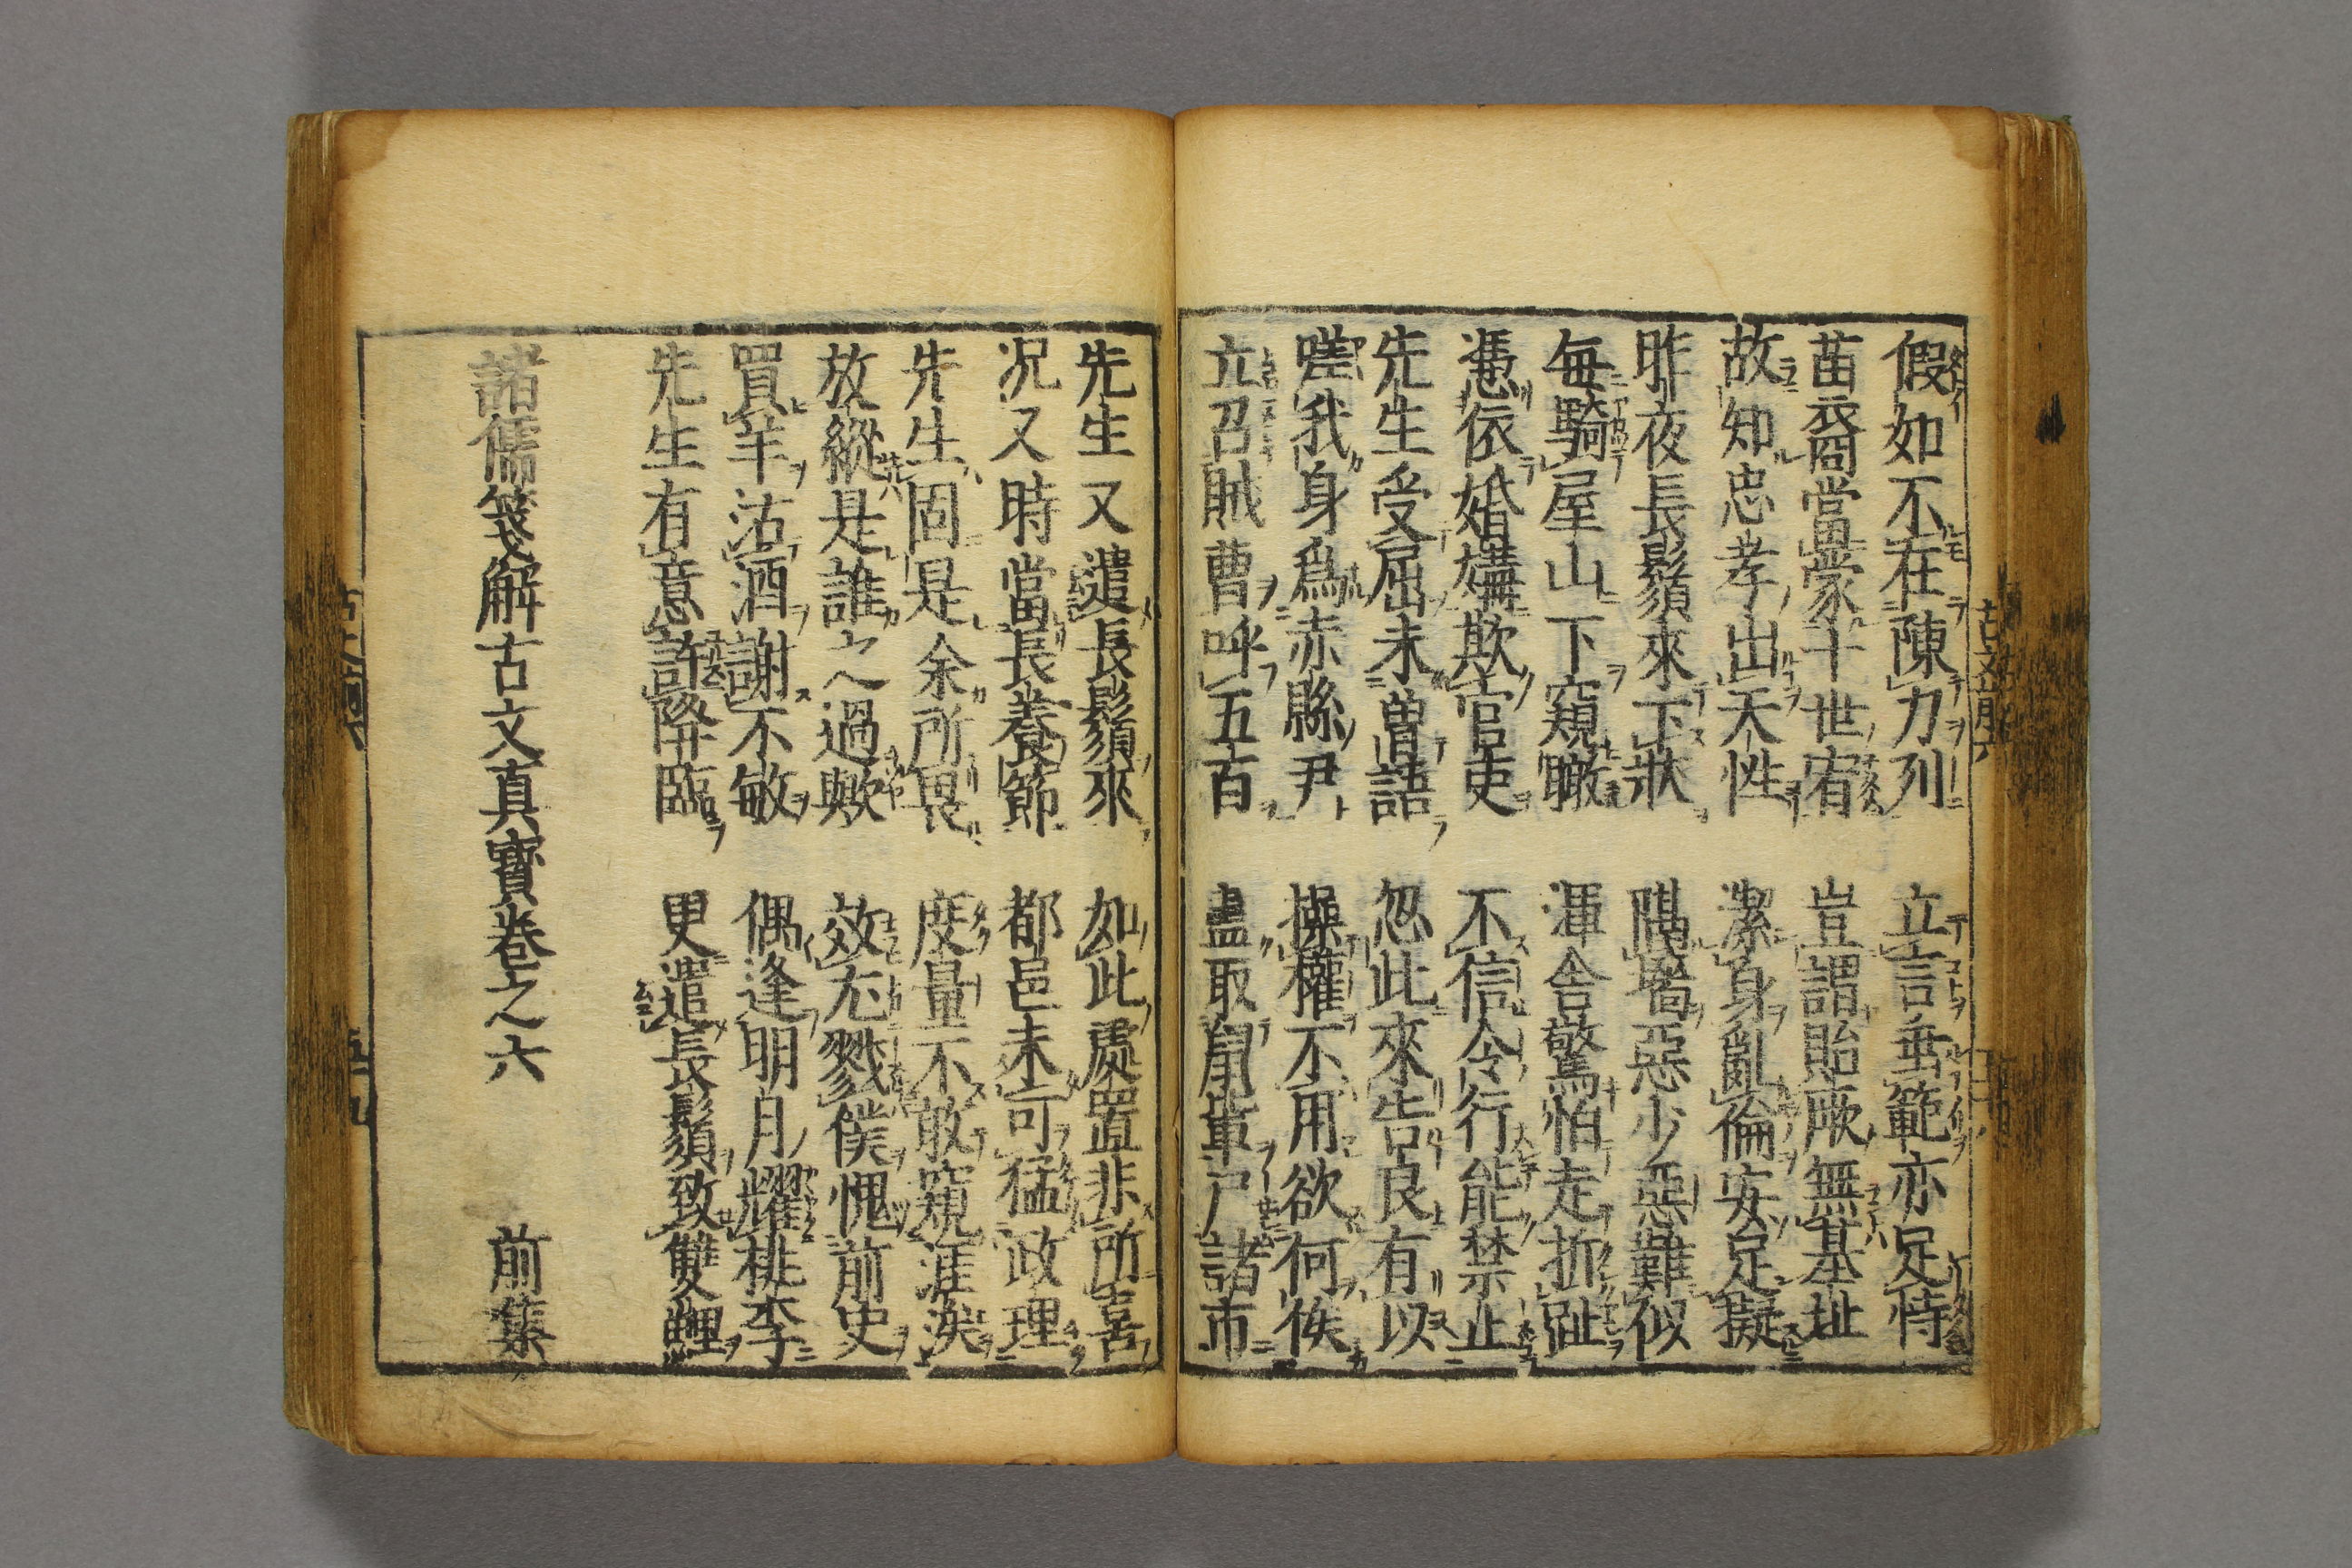 假如不在陳力列　立言垂範亦足恃
苗裔當蒙十世宥　豈謂貽厥無基址
故知忠孝出天性　潔身亂倫安足擬
昨夜長鬚來下狀　隔墻惡少惡難似
每騎屋山下窺瞰　渾舍驚怕走折趾
憑依婚媾欺官吏　不信令行能禁止
先生受屈未曽語　忽此來告良有以
嗟我身爲赤縣尹　操權不用欲何俟
立召賊曹呼五百　盡取鼠輩尸諸市
先生又遣長鬚來　如此處置非所喜
况又時當長養節　都邑未可猛政理
先生固是余所畏　度量不敢窺涯涘
放縱是誰之過歟　效尤戮僕愧前史
買羊沽酒謝不敏　偶逢明月耀桃李
先生有意許降臨　更遣長鬚致雙鯉
諸儒箋解古文真寶卷之六　前集
古文前